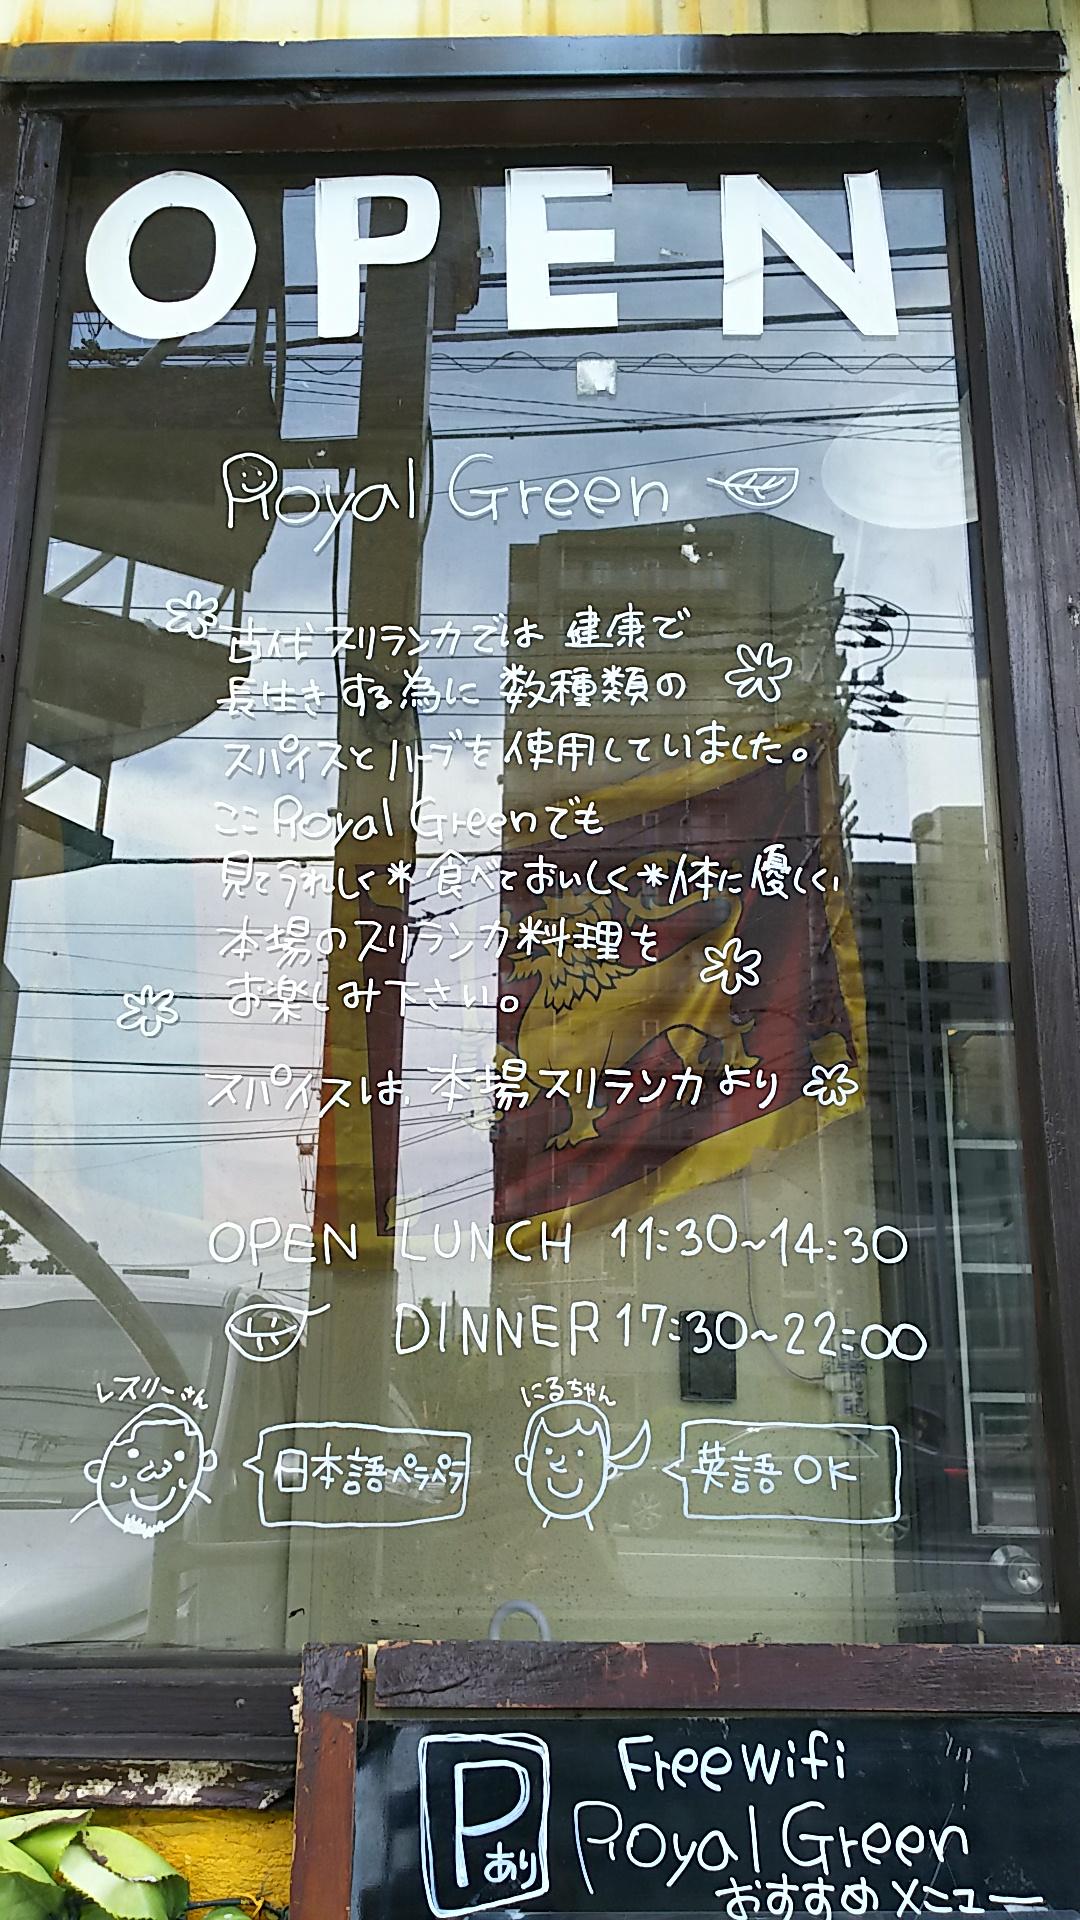 OPEN
Royal Green
古代スリランカでは 健康で
長生きする為に 数種類の
スパイスとハーブを使用していました。
ここ Royal Greenでも
見てうれしく*食べておいしく*体に優しい
本場のスリランカ料理を
お楽しみ下さい。
スパイスは、本場スリランカより
OPEN LUNCH 11:30~14:30
DINNER 17:30~22:00
レスリーさん
日本語ペラペラ
にるちゃん
英語 OK
Pあり
Free wifi
Royal Green
おすすめメニュー